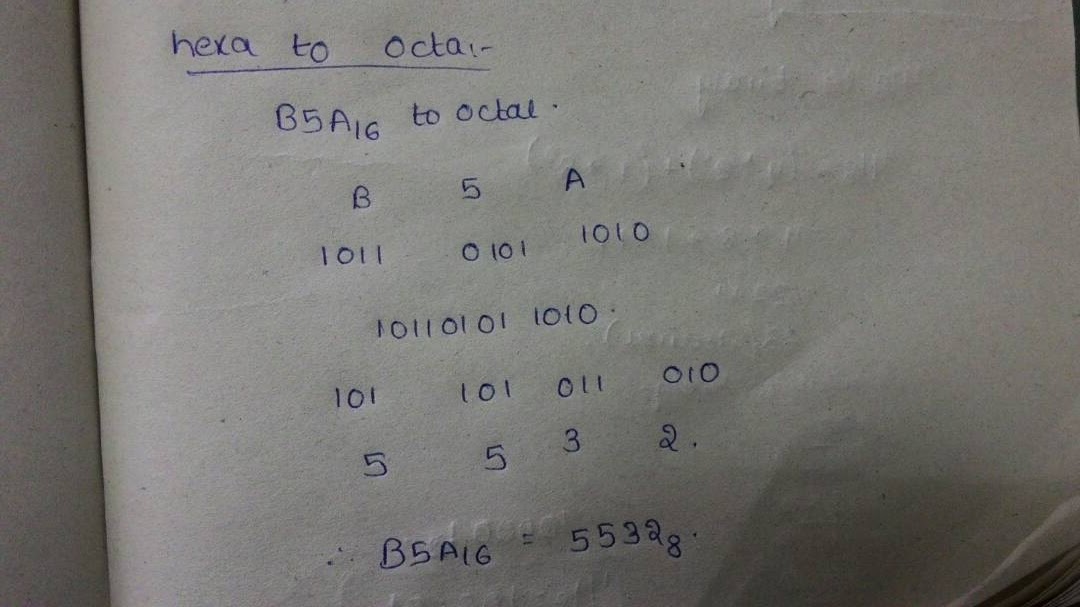 hexa to octal-
B5A16 to octal.
B 5 A
1011 0101 1010
10110101 1010.
101 101 011 010
5 5 3 2.
∴ B5A16 = 55328.